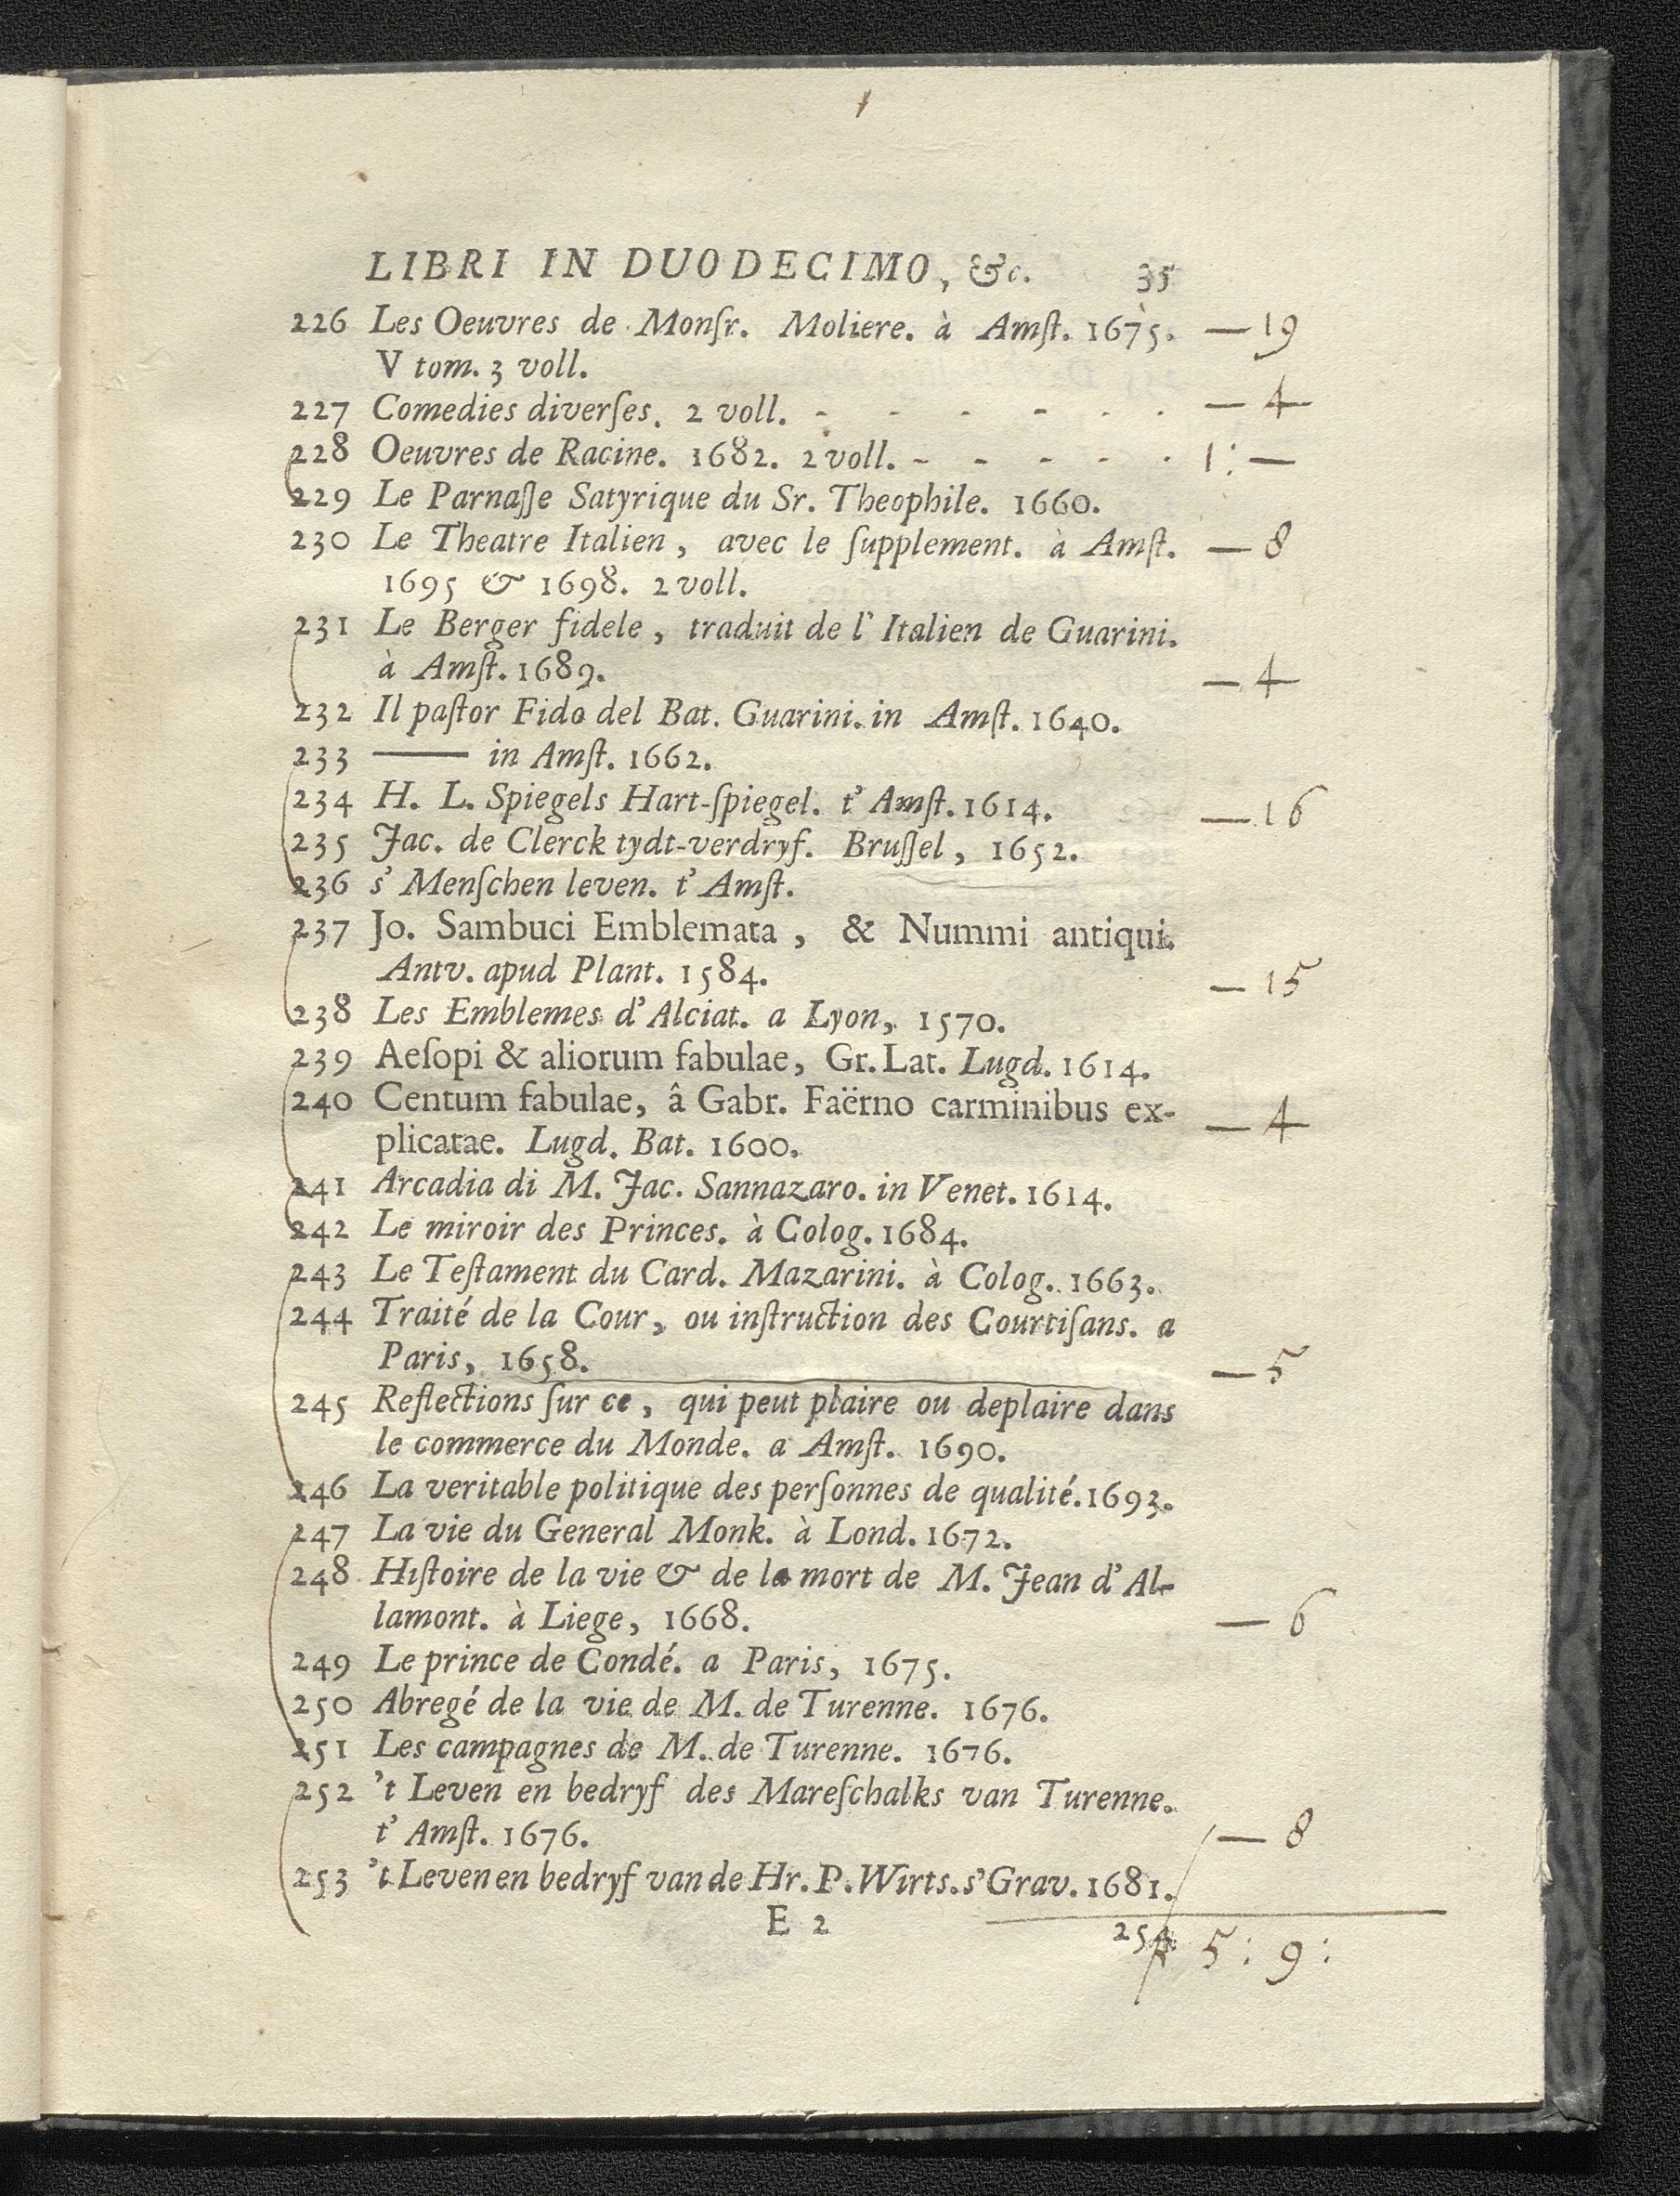 LIBRI IN DUODECIMO, &c. 35
226 Les Oeuvres de Monſr. Moliere. à Amſt. 1675. — 19
V tom. 3 voll.
227 Comedies diverſes. 2 voll. - - - - - - — 4
228 Oeuvres de Racine. 1682. 2 voll. - - - - - 1 : —
229 Le Parnaſſe Satyrique du Sr. Theophile. 1660.
230 Le Theatre Italien, avec le ſupplement. à Amſt. — 8
1695 & 1698. 2 voll.
231 Le Berger fidele, traduit de l' Italien de Guarini.
à Amſt. 1689. — 4
232 Il paſtor Fido del Bat. Guarini. in Amſt. 1640.
233 —— in Amſt. 1662.
234 H. L. Spiegels Hart-ſpiegel. t' Amſt. 1614. — 16
235 Jac. de Clerck tydt-verdryf. Bruſſel, 1652.
236 s' Menſchen leven. t' Amſt.
237 Jo. Sambuci Emblemata, & Nummi antiqui.
Antv. apud Plant. 1584. — 15
238 Les Emblemes d' Alciat. a Lyon, 1570.
239 Aeſopi & aliorum fabulae, Gr. Lat. Lugd. 1614.
240 Centum fabulae, â Gabr. Faërno carminibus ex- — 4
plicatae. Lugd. Bat. 1600.
241 Arcadia di M. Jac. Sannazaro. in Venet. 1614.
242 Le miroir des Princes. à Colog. 1684.
243 Le Teſtament du Card. Mazarini. à Colog. 1663.
244 Traité de la Cour, ou inſtruction des Courtiſans. a
Paris, 1658. — 5
245 Reflections ſur ce, qui peut plaire ou deplaire dans
le commerce du Monde. a Amſt. 1690.
246 La veritable politique des perſonnes de qualité. 1693.
247 La vie du General Monk. à Lond. 1672.
248 Hiſtoire de la vie & de la mort de M. Jean d' Al-
lamont. à Liege, 1668. — 6
249 Le prince de Condé. a Paris, 1675.
250 Abregé de la vie de M. de Turenne. 1676.
251 Les campagnes de M. de Turenne. 1676.
252 't Leven en bedryf des Mareſchalks van Turenne.
t' Amſt. 1676. — 8
253 't Leven en bedryf van de Hr. P. Wirts. s' Grav. 1681.
E 2 254
5 : 9 :